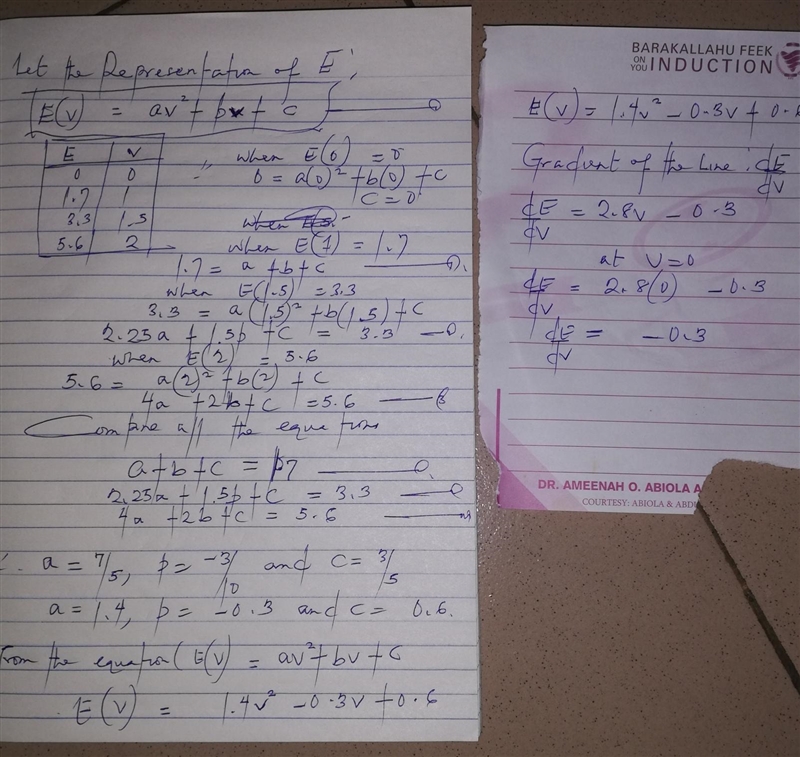 Let the Representation of E;
E(v) = av² + bv + c
E V
0 0
1.7 1
3.3 1.5
5.6 2
when E(0) = 0
0 = a(0)² + b(0) + c
c = 0
when
when E(1) = 1.7
1.7 = a + b + c
when E(1.5) = 3.3
3.3 = a(1.5)² + b(1.5) + c
2.25a + 1.5b + c = 3.3
when E(2) = 5.6
5.6 = a(2)² + b(2) + c
4a + 2b + c = 5.6
Combine all the equations
a + b + c = 1.7
2.25a + 1.5b + c = 3.3
4a + 2b + c = 5.6
∴ a = 7/5, b = -3/10 and c = 3/5
a = 1.4, b = -0.3 and c = 0.6.
From the equation (E(v) = av² + bv + c
E(v) = 1.4v² - 0.3v + 0.6
BARAKALLAHU FEEK
ON YOU INDUCTION
E(v) = 1.4v² - 0.3v + 0.
Gradient of the Line: dE/dv
dE/dv = 2.8v - 0.3
at v = 0
dE/dv = 2.8(0) - 0.3
dE/dv = -0.3
DR. AMEENAH O. ABIOLA A
COURTESY: ABIOLA & ABDU